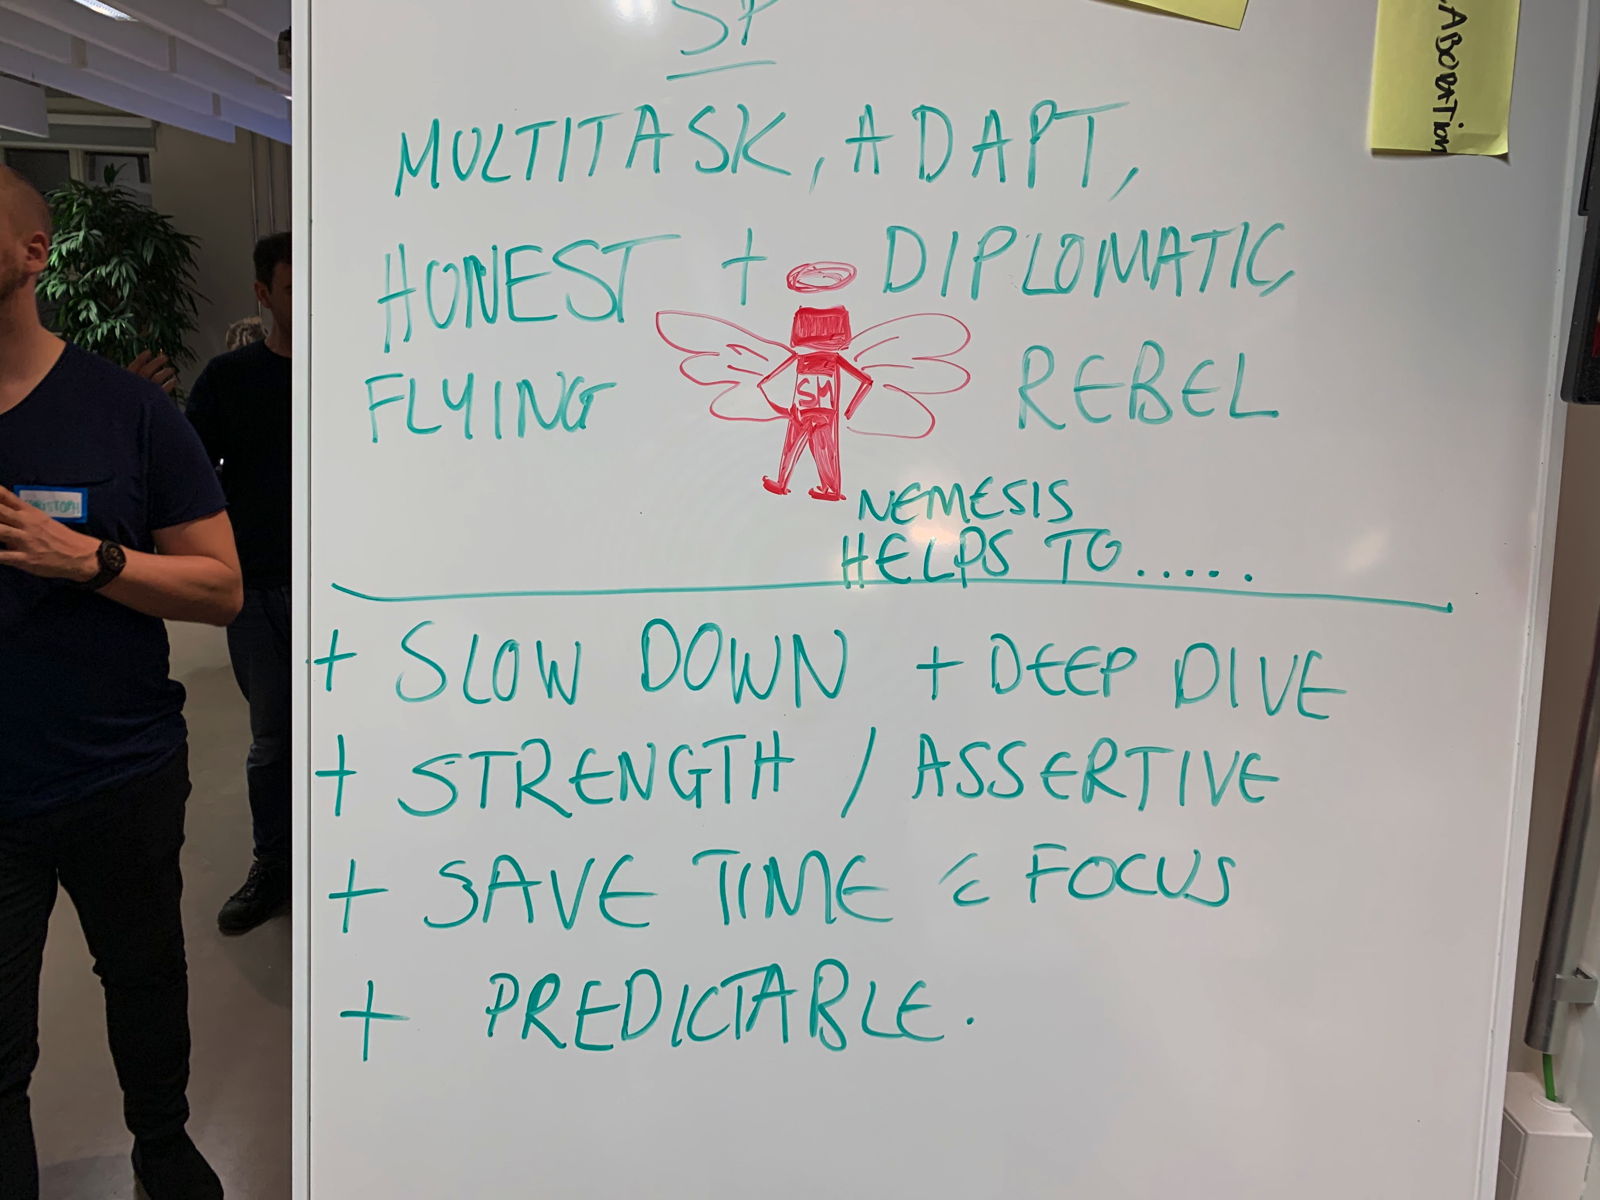 SP
MULTITASK, ADAPT,
HONEST + DIPLOMATIC,
FLYING REBEL
SM
NEMESIS
HELPS TO.....
+ SLOW DOWN + DEEP DIVE
+ STRENGTH / ASSERTIVE
+ SAVE TIME & FOCUS
+ PREDICTABLE.